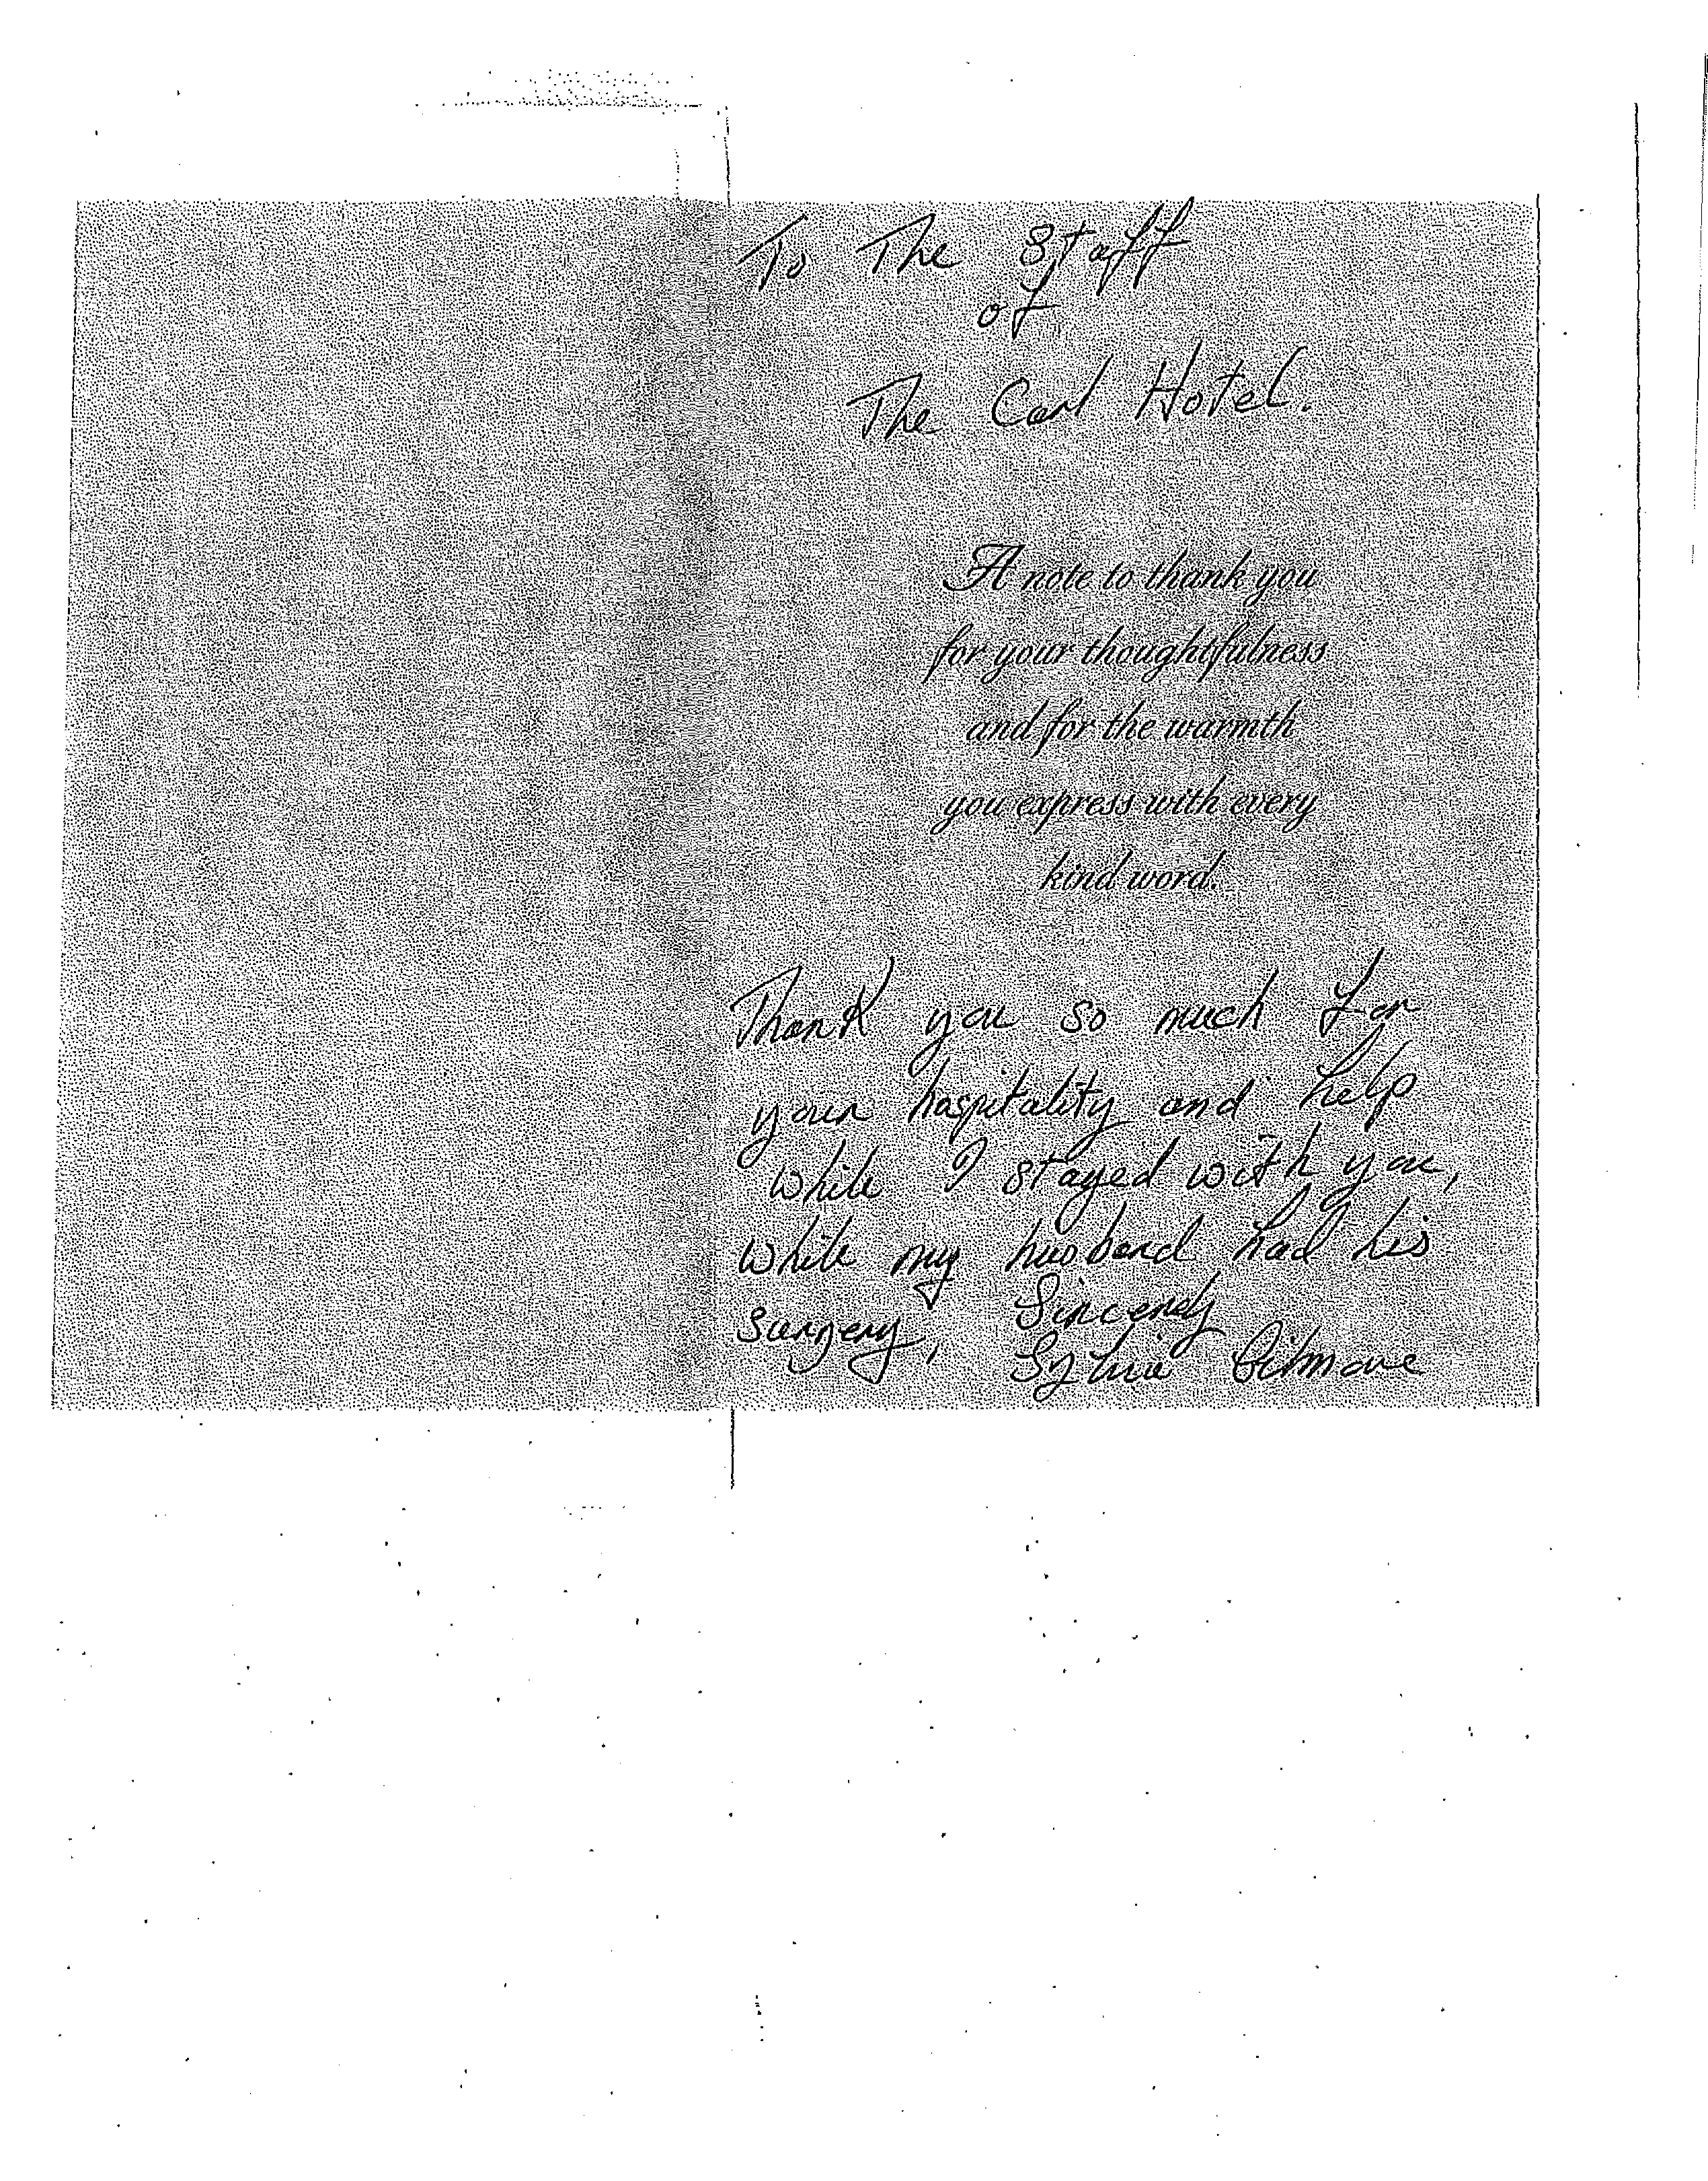 To The Staff
of
The Carl Hotel.
A note to thank you
for your thoughtfulness
and for the warmth
you express with every
kind word.
Thank you so much for
your hospitality and help
while I stayed with you,
while my husband had his
surgery, Sincerely
Sylvia Gilmore